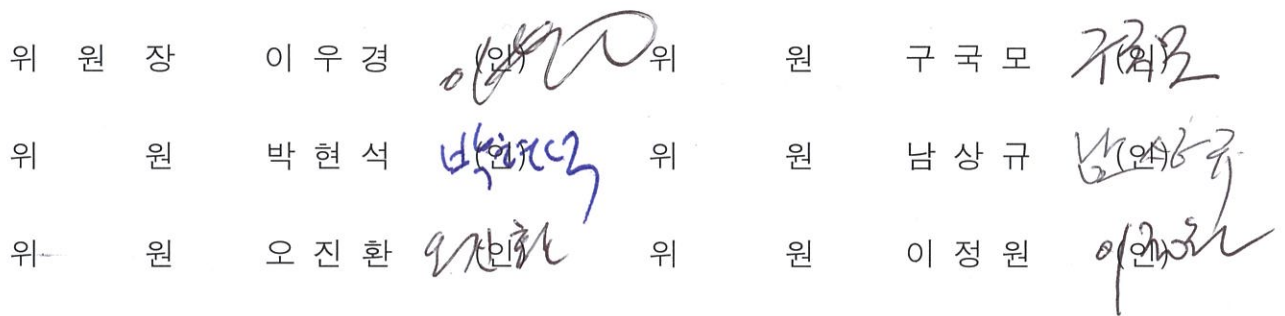 위 원 장 이 우 경 (인) 위 원 구 국 모 (인)
위 원 박 현 석 (인) 위 원 남 상 규 (인)
위 원 오 진 환 (인) 위 원 이 정 원 (인)